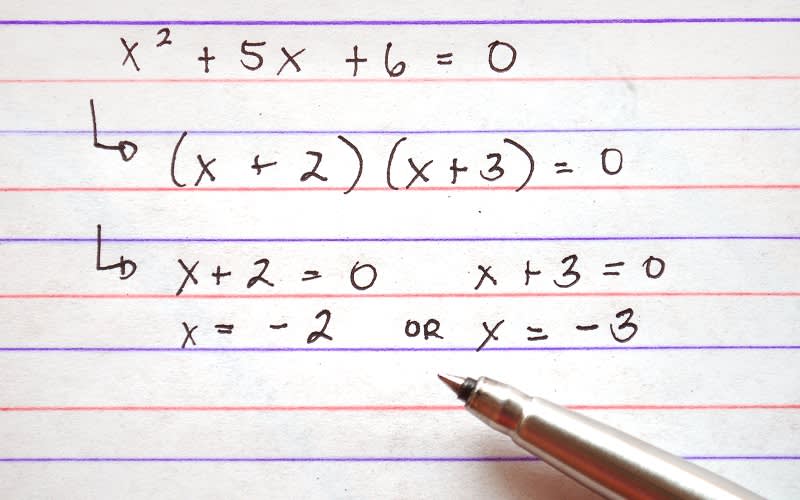 x² + 5x + 6 = 0
(x + 2) (x + 3) = 0
x + 2 = 0 x + 3 = 0
x = - 2 OR x = - 3